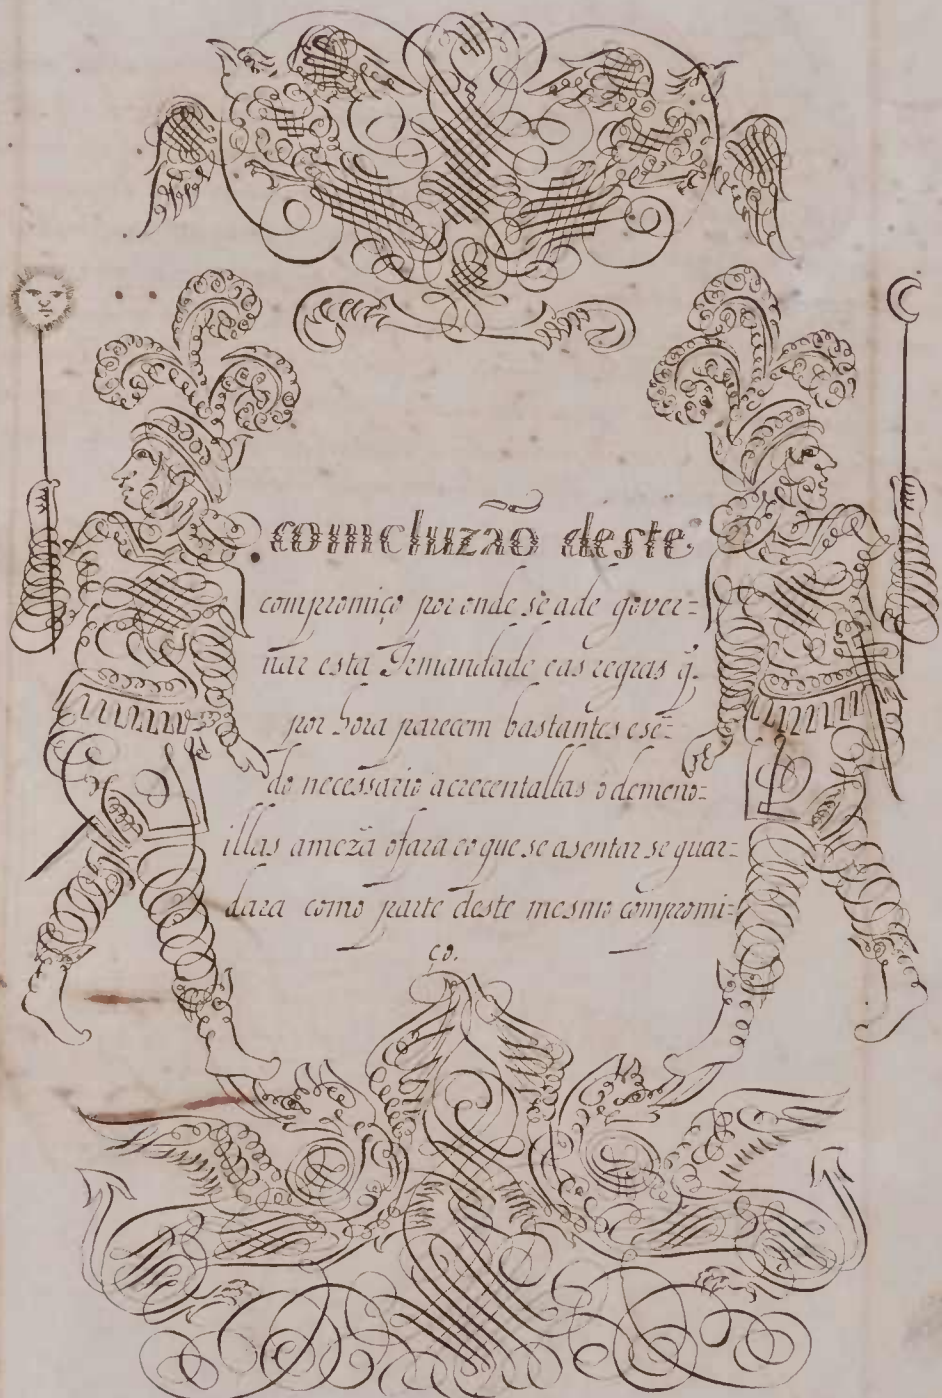 comcluzão deste
compromiço por onde se a de gover=
nar esta Irmandade e as regras q̃.
por hora parecem bastantes e sẽ=
do necessario acrecentallas o demeno=
illas a meza o fara e o que se asentar se guar=
dara como parte deste mesmo compromi=
ço.